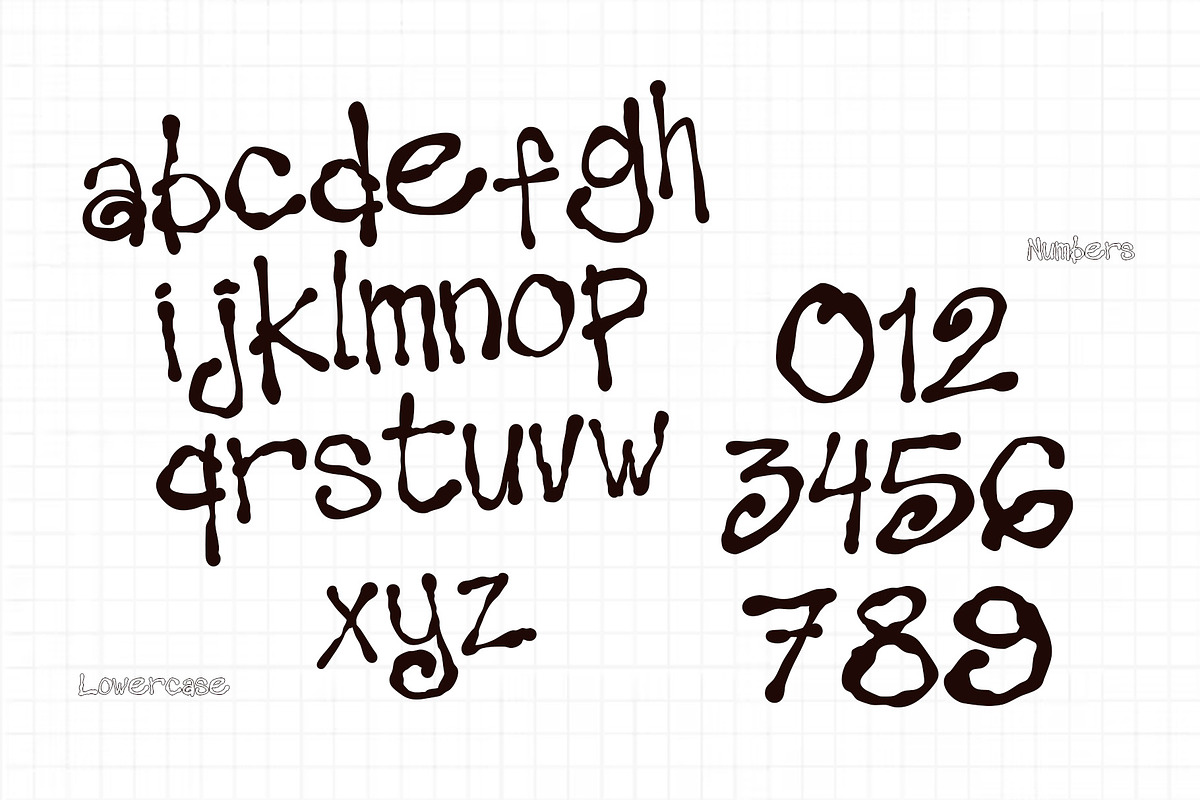 abcdefgh
ijklmnop
qrstuvw
xyz
Lowercase
Numbers
012
3456
789